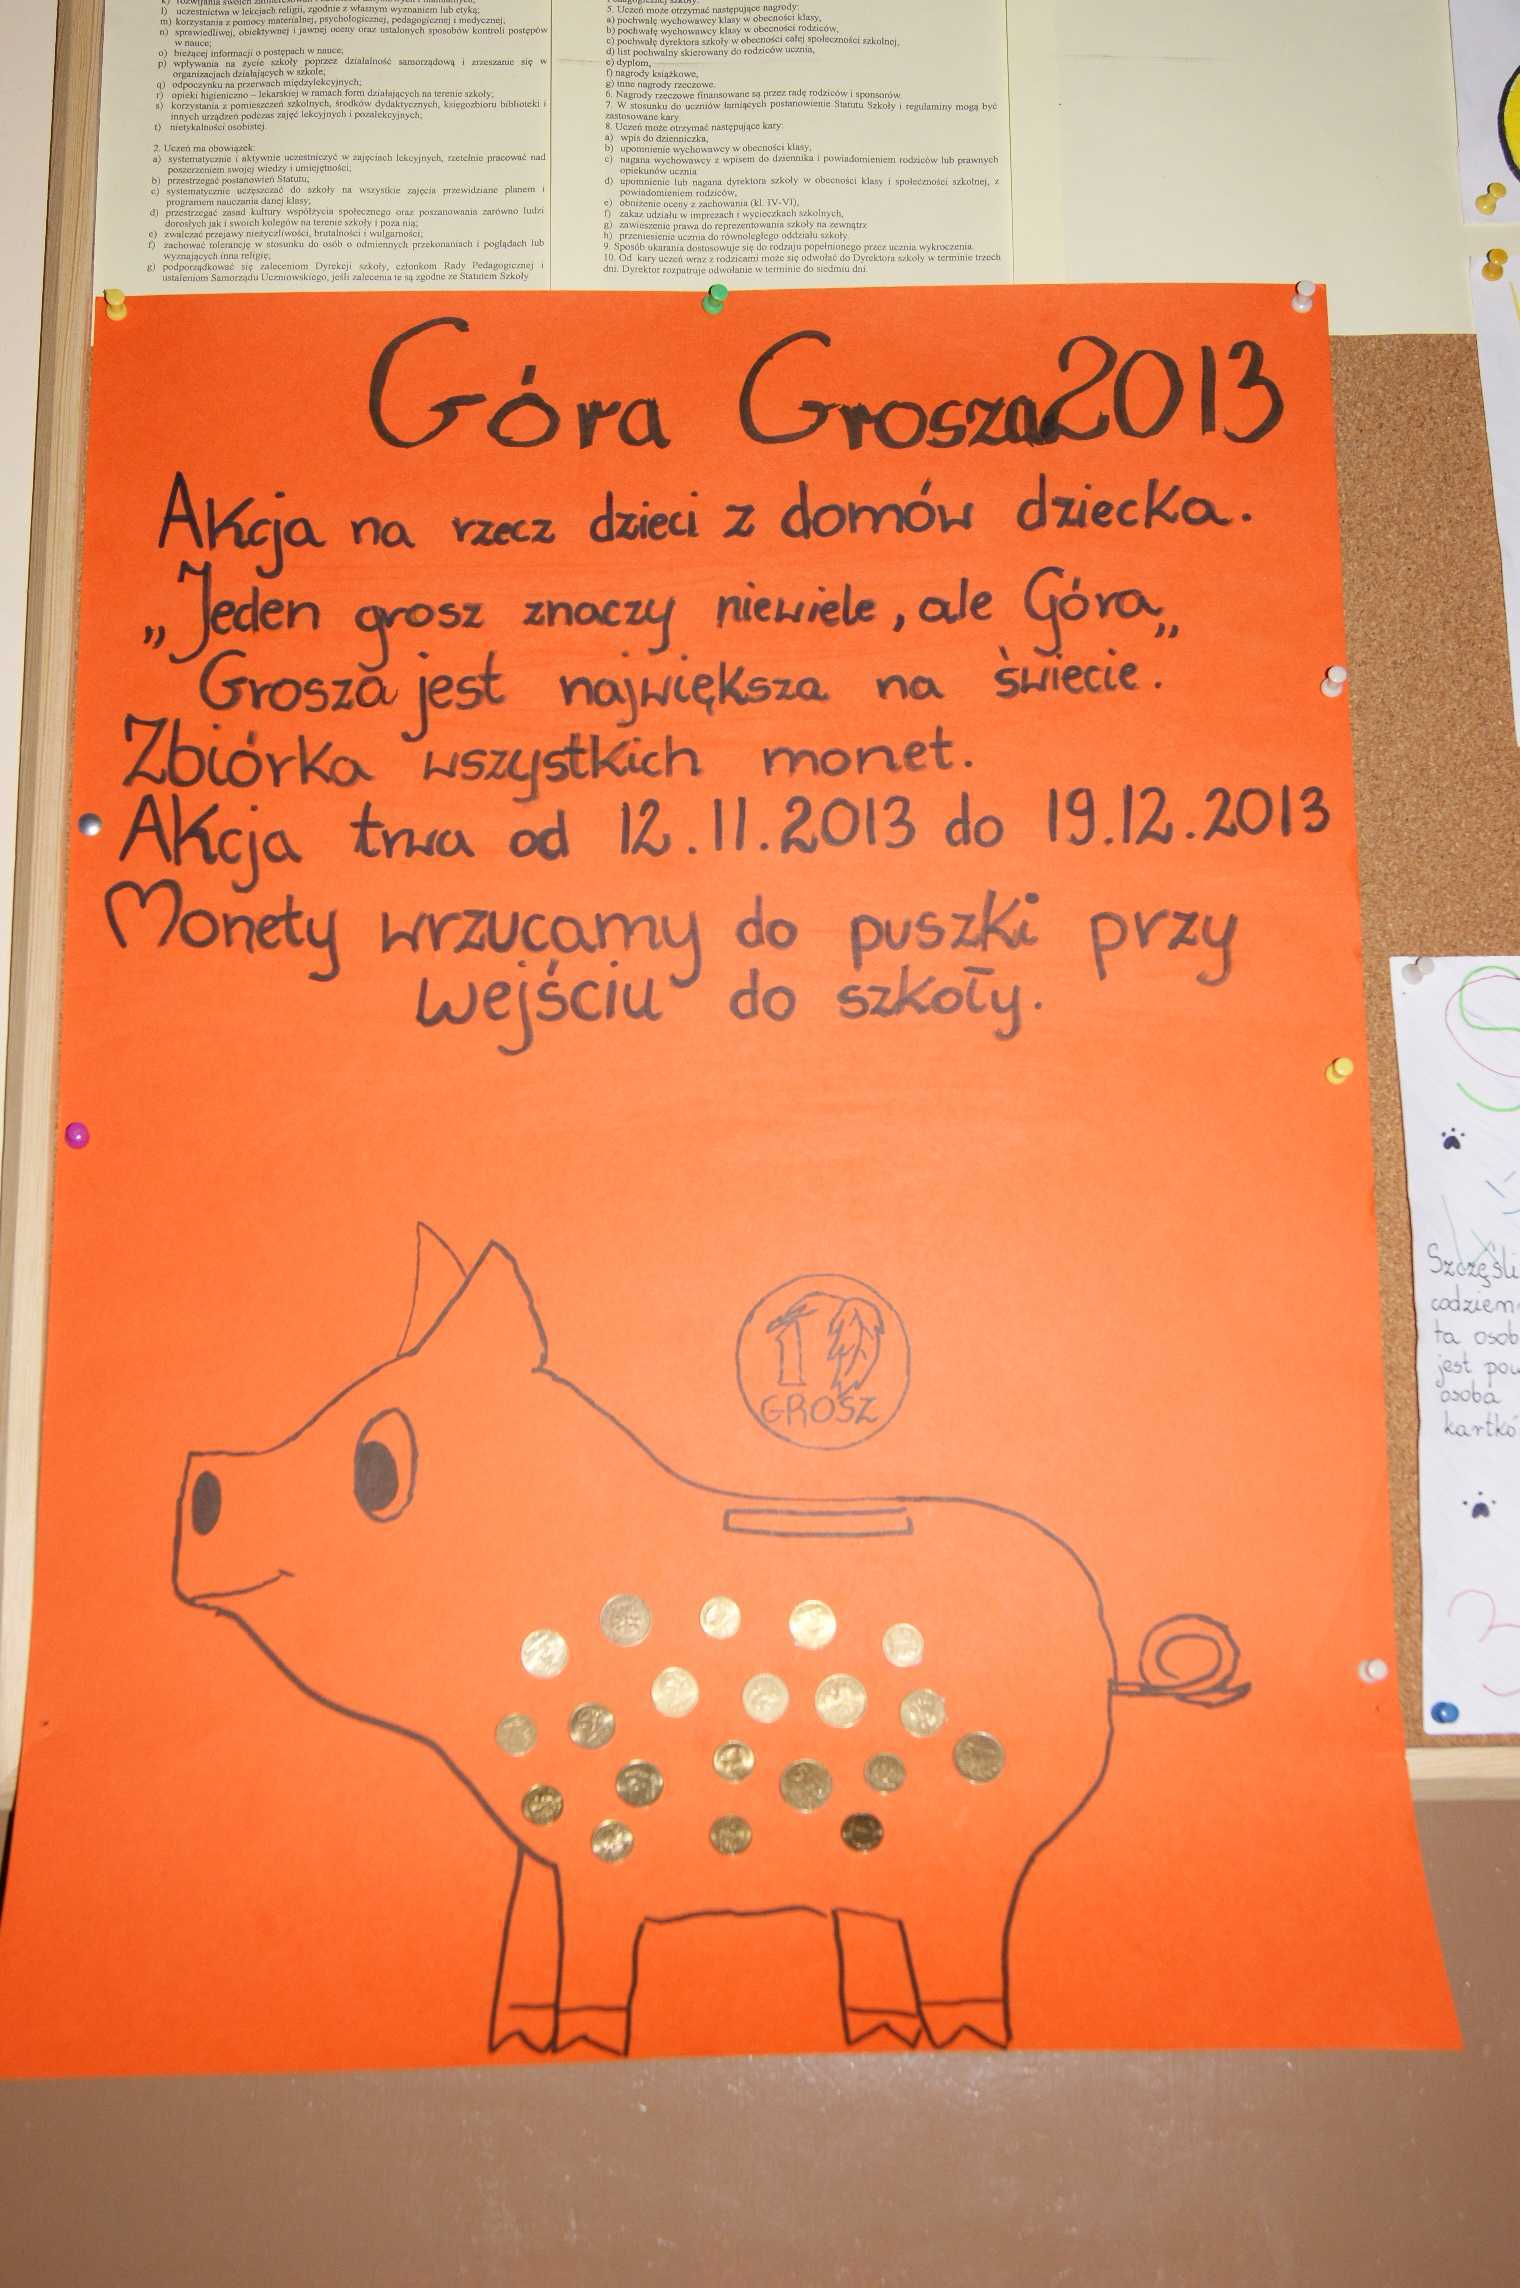 l) uczestnictwa w lekcjach religii, zgodnie z własnym wyznaniem lub etyką;
m) korzystania z pomocy materialnej, psychologicznej, pedagogicznej i medycznej;
n) sprawiedliwej, obiektywnej i jawnej oceny oraz ustalonych sposobów kontroli postępów
w nauce;
o) bieżącej informacji o postępach w nauce;
p) wpływania na życie szkoły poprzez działalność samorządową i zrzeszanie się w
organizacjach działających w szkole;
q) odpoczynku na przerwach międzylekcyjnych;
r) opieki higieniczno – lekarskiej w ramach form działających na terenie szkoły;
s) korzystania z pomieszczeń szkolnych, środków dydaktycznych, księgozbioru biblioteki i
innych urządzeń podczas zajęć lekcyjnych i pozalekcyjnych;
t) nietykalności osobistej.
2. Uczeń ma obowiązek:
a) systematycznie i aktywnie uczestniczyć w zajęciach lekcyjnych, rzetelnie pracować nad
poszerzeniem swojej wiedzy i umiejętności;
b) przestrzegać postanowień Statutu;
c) systematycznie uczęszczać do szkoły na wszystkie zajęcia przewidziane planem i
programem nauczania danej klasy;
d) przestrzegać zasad kultury współżycia społecznego oraz poszanowania zarówno ludzi
dorosłych jak i swoich kolegów na terenie szkoły i poza nią;
e) zwalczać przejawy nieżyczliwości, brutalności i wulgarności;
f) zachować tolerancję w stosunku do osób o odmiennych przekonaniach i poglądach lub
wyznających inna religię;
g) podporządkować się zaleceniom Dyrekcji szkoły, członkom Rady Pedagogicznej i
ustaleniom Samorządu Uczniowskiego, jeśli zalecenia te są zgodne ze Statutem Szkoły
5. Uczeń może otrzymać następujące nagrody:
a) pochwałę wychowawcy klasy w obecności klasy,
b) pochwałę wychowawcy klasy w obecności rodziców,
c) pochwałę dyrektora szkoły w obecności całej społeczności szkolnej,
d) list pochwalny skierowany do rodziców ucznia,
e) dyplom,
f) nagrody książkowe,
g) inne nagrody rzeczowe.
6. Nagrody rzeczowe finansowane są przez radę rodziców i sponsorów.
7. W stosunku do uczniów łamiących postanowienie Statutu Szkoły i regulaminy mogą być
zastosowane kary.
8. Uczeń może otrzymać następujące kary:
a) wpis do dzienniczka,
b) upomnienie wychowawcy w obecności klasy,
c) nagana wychowawcy z wpisem do dziennika i powiadomieniem rodziców lub prawnych
opiekunów ucznia
d) upomnienie lub nagana dyrektora szkoły w obecności klasy i społeczności szkolnej, z
powiadomieniem rodziców,
e) obniżenie oceny z zachowania (kl. IV-VI),
f) zakaz udziału w imprezach i wycieczkach szkolnych,
g) zawieszenie prawa do reprezentowania szkoły na zewnątrz
h) przeniesienie ucznia do równoległego oddziału szkoły.
9. Sposób ukarania dostosowuje się do rodzaju popełnionego przez ucznia wykroczenia.
10. Od kary uczeń wraz z rodzicami może się odwołać do Dyrektora szkoły w terminie trzech
dni. Dyrektor rozpatruje odwołanie w terminie do siedmiu dni.
Góra Grosza 2013
Akcja na rzecz dzieci z domów dziecka.
„Jeden grosz znaczy niewiele, ale Góra„
Grosza jest największa na świecie.
Zbiórka wszystkich monet.
Akcja trwa od 12.11.2013 do 19.12.2013
Monety wrzucamy do puszki przy
wejściu do szkoły.
1
GROSZ
Szczęśli
codzien
ta osob
jest pow
osoba
kartkó